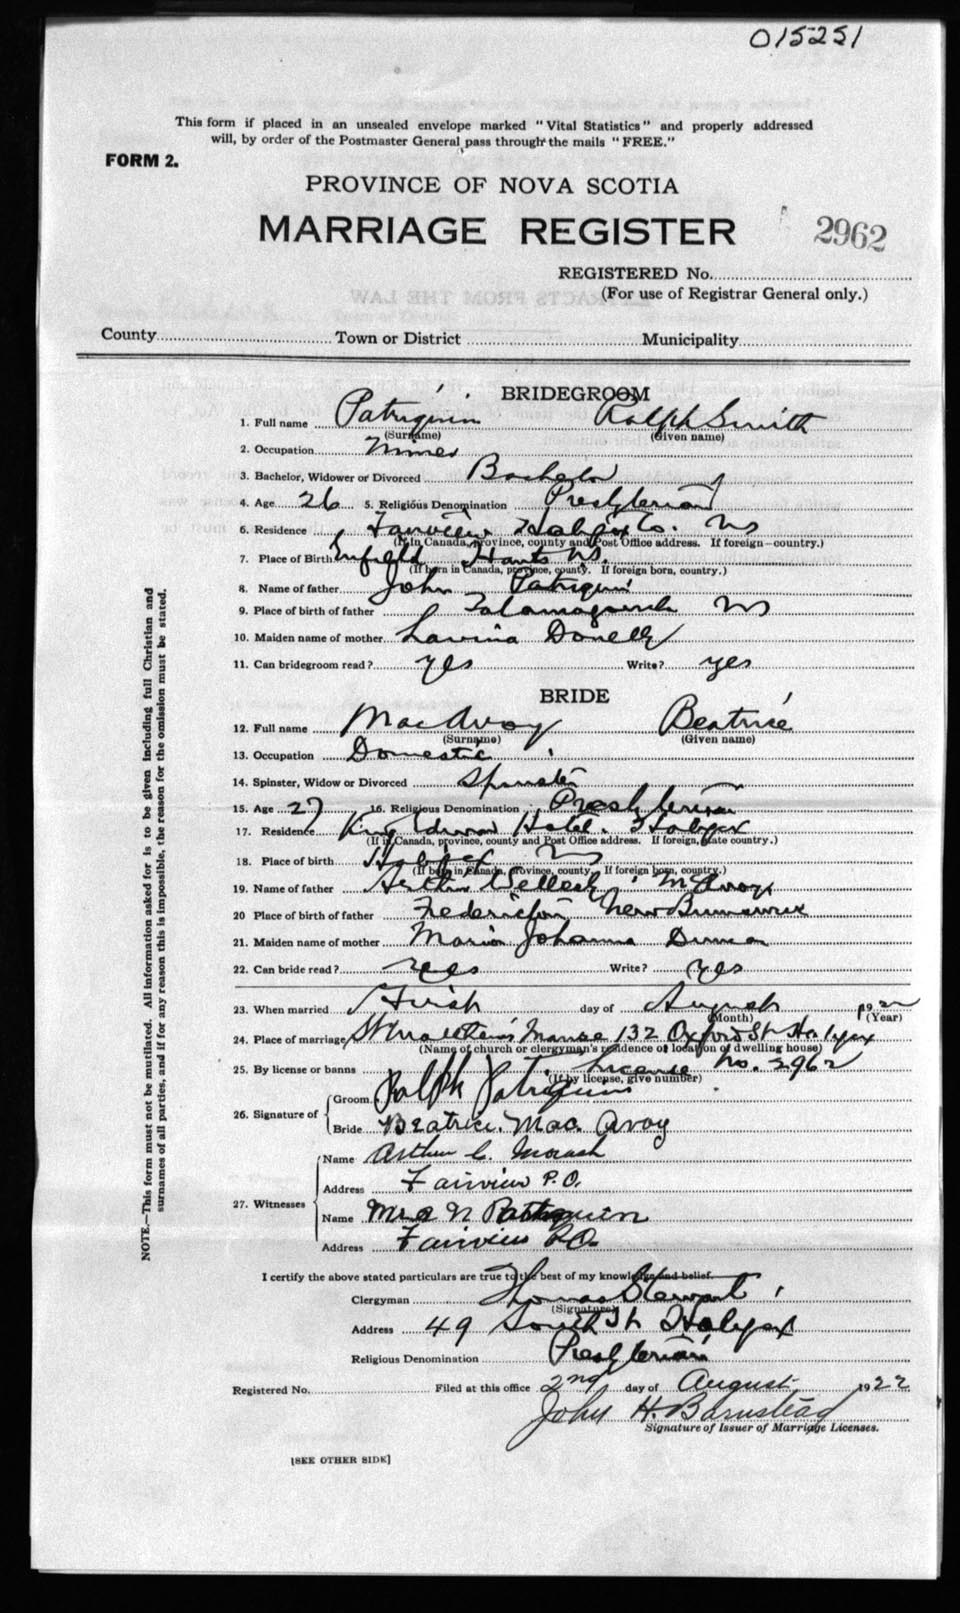 015251
This form if placed in an unsealed envelope marked "Vital Statistics" and properly addressed
will, by order of the Postmaster General pass through the mails "FREE."
FORM 2.
PROVINCE OF NOVA SCOTIA
MARRIAGE REGISTER 2962
REGISTERED No.
(For use of Registrar General only.)
County Town or District Municipality
BRIDEGROOM
1. Full name Patriquin Ralph Smith
(Surname) (Given name)
2. Occupation Miner
3. Bachelor, Widower or Divorced Bachelor
4. Age 26 5. Religious Denomination Presbyterian
6. Residence Fairview Halifax Co. NS
(If in Canada, province, county and Post Office address. If foreign—country.)
7. Place of Birth Enfield Hants NS.
(If born in Canada, province, county. If foreign born, country.)
8. Name of father John Patriquin
9. Place of birth of father Tatamagouche NS
10. Maiden name of mother Lavinia Donelly
11. Can bridegroom read? yes Write? yes
BRIDE
12. Full name MacAvoy Beatrice
(Surname) (Given name)
13. Occupation Domestic
14. Spinster, Widow or Divorced Spinster
15. Age 27 16. Religious Denomination Presbyterian
17. Residence King Edward Hotel. Halifax
(If in Canada, province, county and Post Office address. If foreign, state country.)
18. Place of birth Halifax NS
(If born in Canada, province, county. If foreign born, country.)
19. Name of father Arthur Wellesly McAvoy
20 Place of birth of father Fredericton New Brunswick
21. Maiden name of mother Marion Johanna Duncan
22. Can bride read? Yes Write? Yes
23. When married First day of August 1922
(Month) (Year)
24. Place of marriage St Matthew's Manse 132 Oxford St Halifax
(Name of church or clergyman's residence or location of dwelling house)
25. By license or banns License No. 2962
(If by license, give number)
26. Signature of Groom Ralph Patriquin
Bride Beatrice. Mac. Avoy
27. Witnesses
Name Arthur C. Morash
Address Fairview P.O.
Name Mrs N Patriquin
Address Fairview P.O.
I certify the above stated particulars are true to the best of my knowledge and belief.
Clergyman Thomas Stewart
(Signature)
Address 49 South St Halifax
Religious Denomination Presbyterian
Registered No. Filed at this office 2nd day of August 1922
John H. Barnstead
Signature of Issuer of Marriage Licenses.
[SEE OTHER SIDE]
NOTE.—This form must not be mutilated. All information asked for is to be given including full Christian and
surnames of all parties, and if for any reason this is impossible, the reason for the omission must be stated.